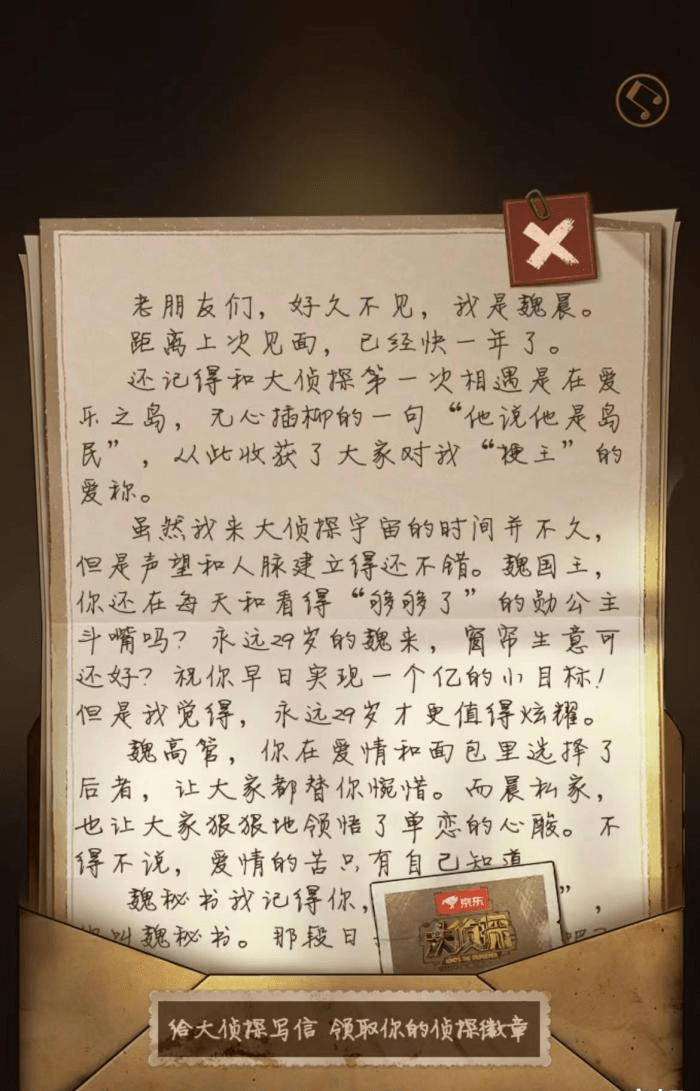 老朋友们，好久不见，我是魏晨。
距离上次见面，已经快一年了。
还记得和大侦探第一次相遇是在爱
乐之岛，无心插柳的一句“他说他是岛
民”，从此收获了大家对我“梗王”的
爱称。
虽然我来大侦探宇宙的时间并不久，
但是声望和人脉建立得还不错。魏国王，
你还在每天和看得“够够了”的勋公主
斗嘴吗？永远29岁的魏来，窗帘生意可
还好？祝你早日实现一个亿的小目标！
但是我觉得，永远29岁才更值得炫耀。
魏高管，你在爱情和面包里选择了
后者，让大家都替你惋惜。而晨私家，
也让大家狠狠地领悟了单恋的心酸。不
得不说，爱情的苦只有自己知道
魏秘书我记得你，
”，
叫魏秘书。那段日
京东
大侦探
给大侦探写信 领取你的侦探徽章